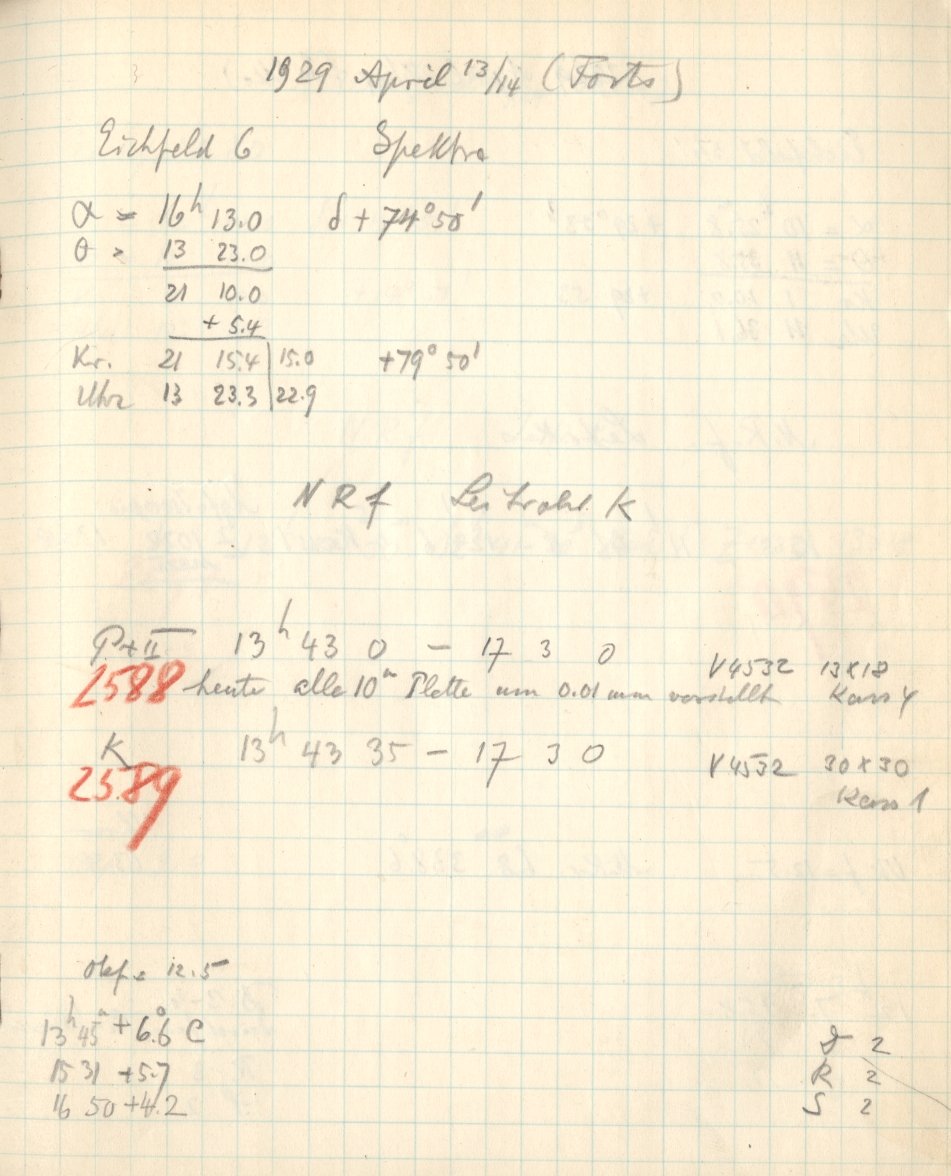 1929 April 13/14 (Forts)
Eichfeld 6 Spektra
α = 16h 13.0 δ + 74° 50'
θ = 13 23.0
21 10.0
+ 5.4
Kr. 21 15.4 | 15.0 +79° 50'
Uhr 13 23.3 | 22.9
N R f Leitrohr K
P+II 13h 43 0 – 17 3 0 V4532 13x18
2588 heute alle 10m Platte um 0.01 mm verstellt Kass 4
K 13h 43 35 – 17 3 0 V4532 30x30
2589 Kass 1
Okf = 12.5
13h 45m +6.6° C
15 31 +5.7
16 50 +4.2
2
R 2
S 2